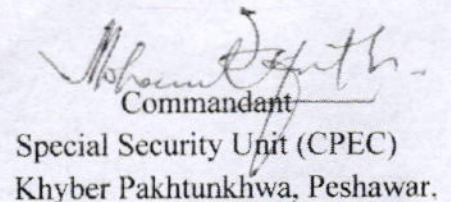 Commandant
Special Security Unit (CPEC)
Khyber Pakhtunkhwa, Peshawar.